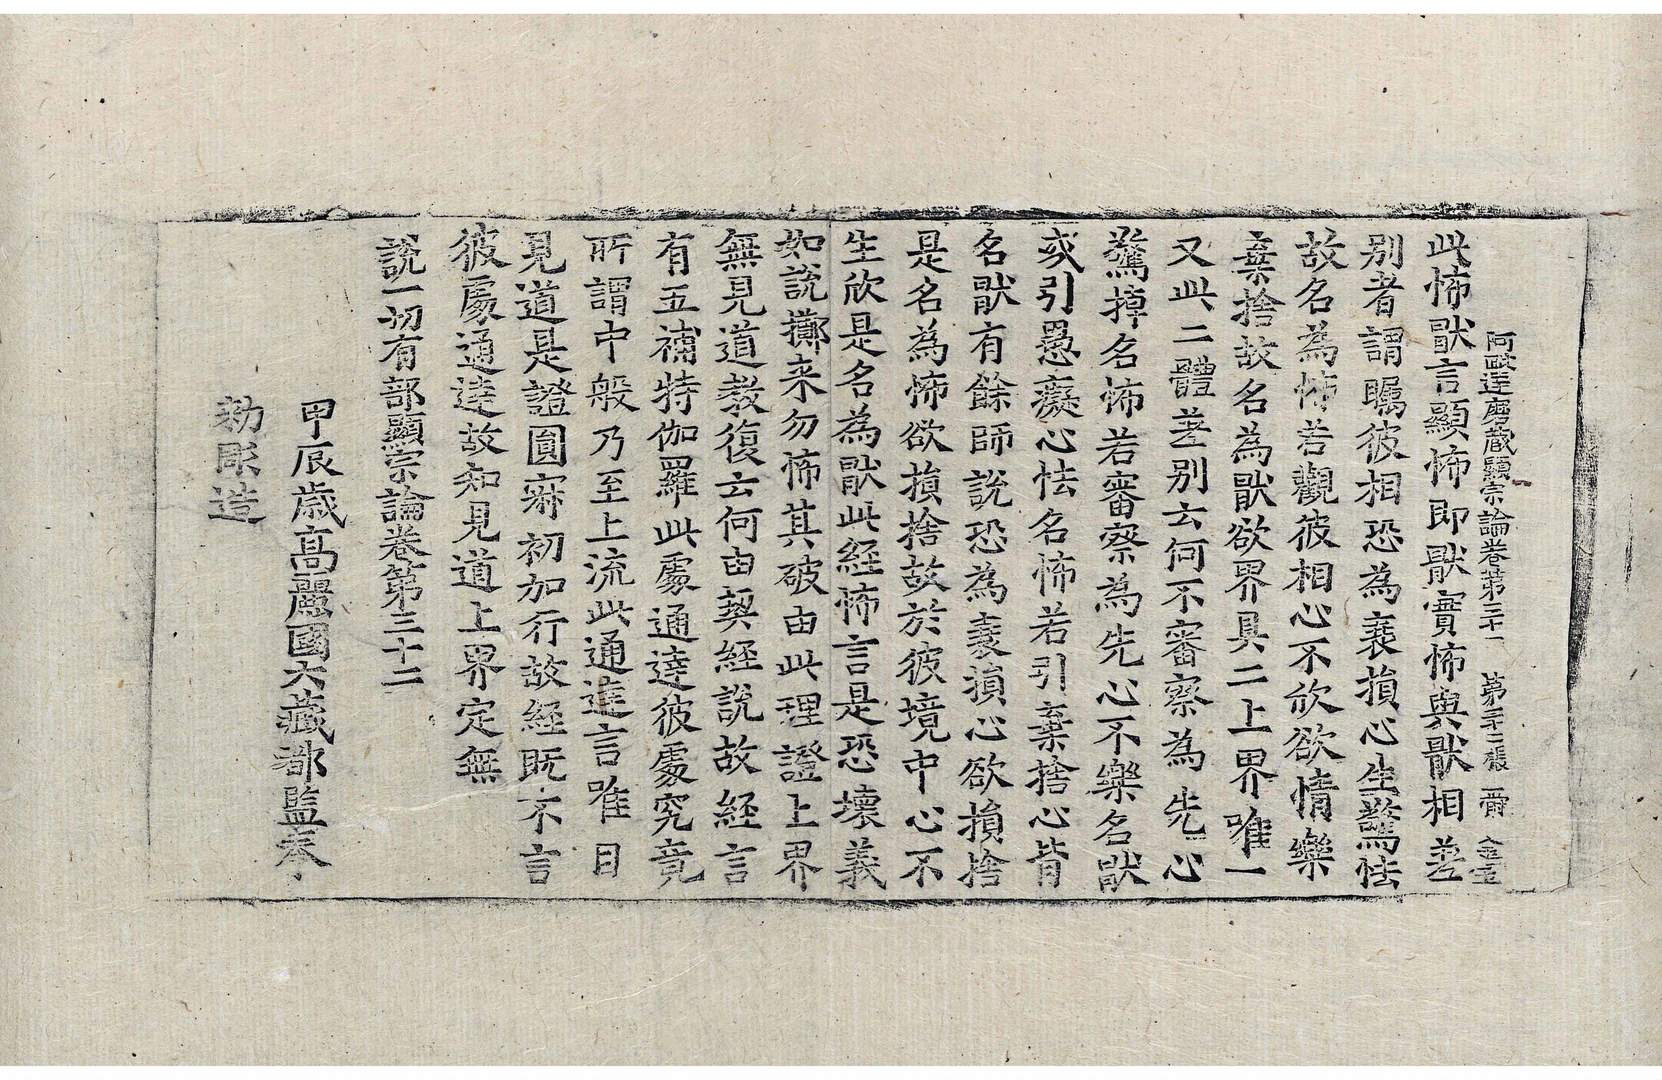 阿毗達磨藏顯宗論卷第三十二 第二十二張 爾
此怖猒言顯怖即猒實怖與猒相差
別者謂矚彼相恐為衰損心生驚怯
故名為怖若觀彼相心不欣欲情樂
棄捨故名為猒欲界具二上界唯一
又此二體差別云何不審察為先心
驚掉名怖若審察為先心不樂名猒
或引愚癡心怯名怖若引棄捨心皆
名猒有餘師說恐為衰損心欲損捨
是名為怖欲損捨故於彼境中心不
生欣是名為猒此經怖言是恐壞義
如說擲来勿怖其破由此理證上界
無見道教復云何由契經說故經言
有五補特伽羅此處通達彼處究竟
所謂中般乃至上流此通達言唯目
見道是證圓寂初加行故經既不言
彼處通達故知見道上界定無
說一切有部顯宗論卷第三十二
甲辰歲高麗國大藏都監奉
勅彫造